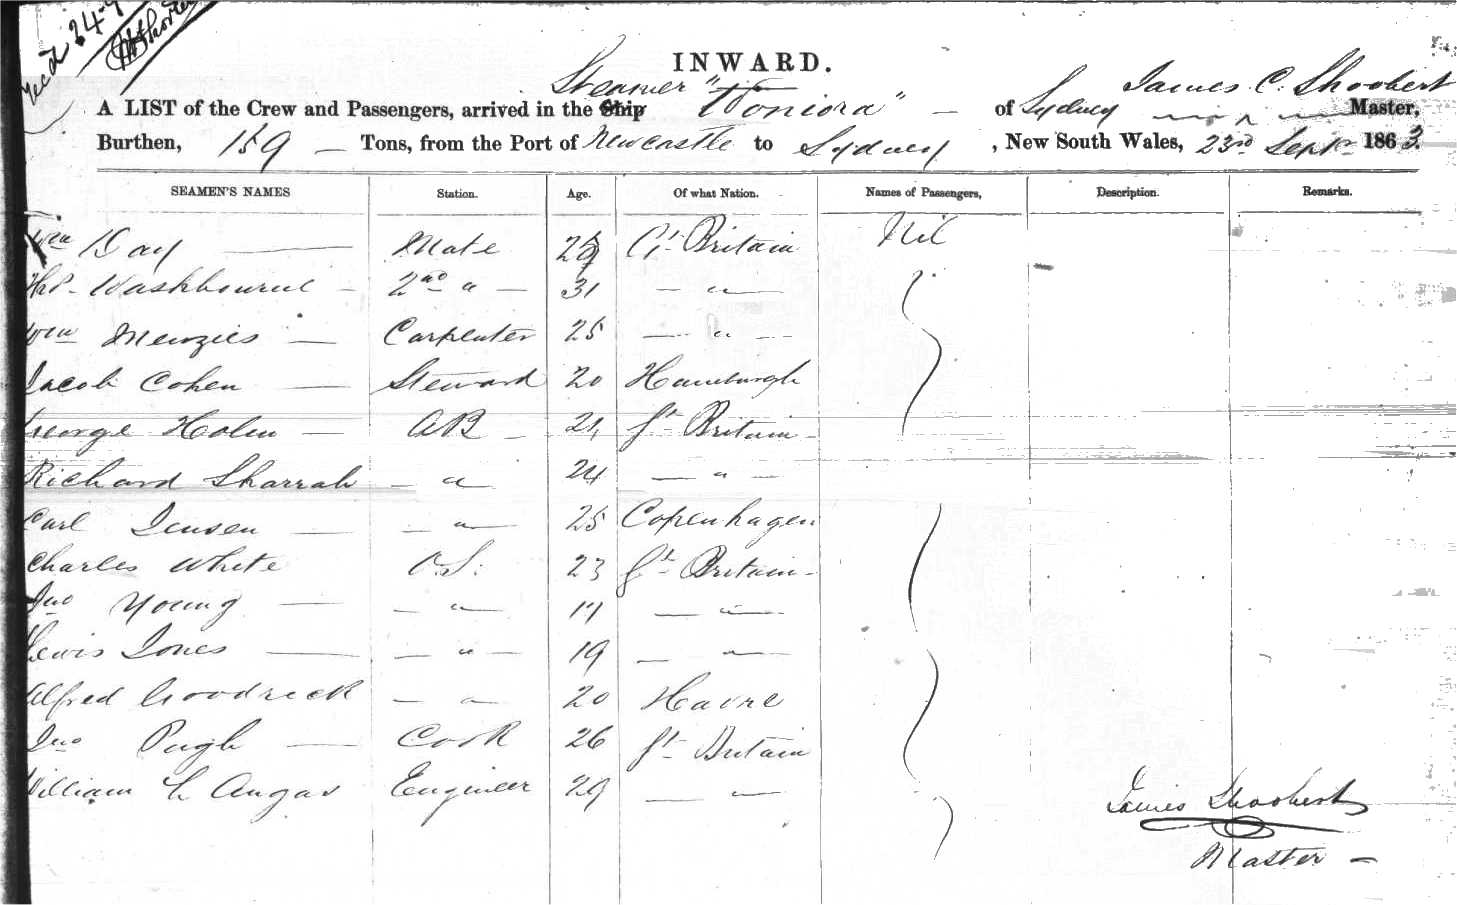 Rec'd 24
INWARD.
Steamer "Woniora" James C. Shoobert
A LIST of the Crew and Passengers, arrived in the Ship — of Sydney Master,
Burthen, 159 — Tons, from the Port of Newcastle to Sydney, New South Wales, 23rd Septr 1863.
SEAMEN'S NAMES Station. Age. Of what Nation. Names of Passengers, Description. Remarks.
Wm Day — Mate 29 Gt Britain Nil
Washbourne — 2nd " — 31 — " —
Wm Menzies — Carpenter 25 — " —
Jacob Cohen — Steward 20 Hamburgh
George Holm — AB — 21 Gt Britain —
Richard Sharrab — " 24 — " —
Carl Jensen — — " — 25 Copenhagen
Charles White O.S. 23 Gt Britain —
Jno Young — — " — 17 — " —
Lewis Jones — — " — 19 — " —
Alfred Goodrick — " — 20 Havre
Jno Pugh — Cook 26 Gt Britain
William Angas Engineer 29 — " —
James Shoobert
Master —